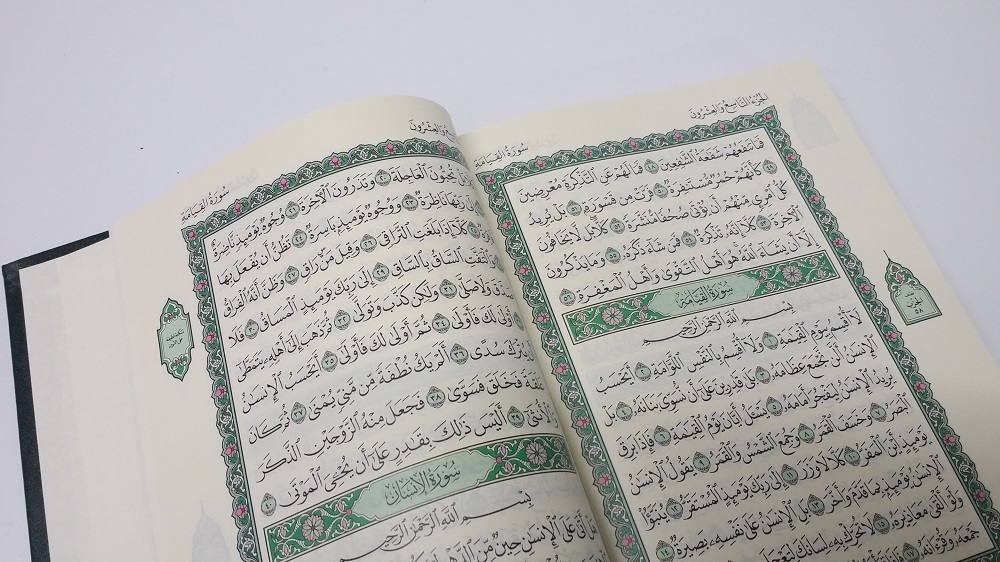 سُورَةُ القِيَامَةِ الجُزْءُ التَّاسِعُ وَالعِشْرُونَ
فَمَا تَنفَعُهُمْ شَفَٰعَةُ ٱلشَّٰفِعِينَ ٤٨ فَمَا لَهُمْ عَنِ ٱلتَّذْكِرَةِ مُعْرِضِينَ ٤٩
كَأَنَّهُمْ حُمُرٌ مُّسْتَنفِرَةٌ ٥٠ فَرَّتْ مِن قَسْوَرَةٍ ٥١ بَلْ يُرِيدُ
كُلُّ ٱمْرِئٍ مِّنْهُمْ أَن يُؤْتَىٰ صُحُفًا مُّنَشَّرَةً ٥٢ كَلَّا بَل لَّا يَخَافُونَ
ٱلْأَخِرَةَ ٥٣ كَلَّا إِنَّهُۥ تَذْكِرَةٌ ٥٤ فَمَن شَاءَ ذَكَرَهُۥ ٥٥ وَمَا يَذْكُرُونَ
إِلَّا أَن يَشَاءَ ٱللَّهُ هُوَ أَهْلُ ٱلتَّقْوَىٰ وَأَهْلُ ٱلْمَغْفِرَةِ ٥٦
سُورَةُ القِيَامَةِ
بِسْمِ ٱللَّهِ ٱلرَّحْمَٰنِ ٱلرَّحِيمِ
لَا أُقْسِمُ بِيَوْمِ ٱلْقِيَٰمَةِ ١ وَلَا أُقْسِمُ بِٱلنَّفْسِ ٱللَّوَّامَةِ ٢ أَيَحْسَبُ
ٱلْإِنسَٰنُ أَلَّن نَّجْمَعَ عِظَامَهُۥ ٣ بَلَىٰ قَٰدِرِينَ عَلَىٰ أَن نُّسَوِّيَ بَنَانَهُۥ ٤ بَلْ
يُرِيدُ ٱلْإِنسَٰنُ لِيَفْجُرَ أَمَامَهُۥ ٥ يَسْـَٔلُ أَيَّانَ يَوْمُ ٱلْقِيَٰمَةِ ٦ فَإِذَا بَرِقَ
ٱلْبَصَرُ ٧ وَخَسَفَ ٱلْقَمَرُ ٨ وَجُمِعَ ٱلشَّمْسُ وَٱلْقَمَرُ ٩ يَقُولُ ٱلْإِنسَٰنُ
يَوْمَئِذٍ أَيْنَ ٱلْمَفَرُّ ١٠ كَلَّا لَا وَزَرَ ١١ إِلَىٰ رَبِّكَ يَوْمَئِذٍ ٱلْمُسْتَقَرُّ ١٢ يُنَبَّؤُا
ٱلْإِنسَٰنُ يَوْمَئِذٍ بِمَا قَدَّمَ وَأَخَّرَ ١٣ بَلِ ٱلْإِنسَٰنُ عَلَىٰ نَفْسِهِۦ بَصِيرَةٌ ١٤
وَلَوْ أَلْقَىٰ مَعَاذِيرَهُۥ ١٥ لَا تُحَرِّكْ بِهِۦ لِسَانَكَ لِتَعْجَلَ
جَمْعَهُۥ وَقُرْءَانَهُۥ ١٧
الحِزْب
٥٨
وَالعِشْرُونَ سُورَةُ القِيَامَةِ
تُحِبُّونَ ٱلْعَاجِلَةَ ٢٠ وَتَذَرُونَ ٱلْأَخِرَةَ ٢١ وُجُوهٌ يَوْمَئِذٍ نَّاضِرَةٌ
إِلَىٰ رَبِّهَا نَاظِرَةٌ ٢٣ وَوُجُوهٌ يَوْمَئِذٍ بَاسِرَةٌ ٢٤ تَظُنُّ أَن يُفْعَلَ بِهَا
كَلَّا إِذَا بَلَغَتِ ٱلتَّرَاقِيَ ٢٦ وَقِيلَ مَنْ رَاقٍ ٢٧ وَظَنَّ أَنَّهُ ٱلْفِرَاقُ
وَٱلْتَفَّتِ ٱلسَّاقُ بِٱلسَّاقِ ٢٩ إِلَىٰ رَبِّكَ يَوْمَئِذٍ ٱلْمَسَاقُ ٣٠ فَلَا
وَلَا صَلَّىٰ ٣١ وَلَٰكِن كَذَّبَ وَتَوَلَّىٰ ٣٢ ثُمَّ ذَهَبَ إِلَىٰ أَهْلِهِۦ يَتَمَطَّىٰ
لَكَ فَأَوْلَىٰ ٣٤ ثُمَّ أَوْلَىٰ لَكَ فَأَوْلَىٰ ٣٥ أَيَحْسَبُ ٱلْإِنسَٰنُ
يُتْرَكَ سُدًى ٣٦ أَلَمْ يَكُ نُطْفَةً مِّن مَّنِيٍّ يُمْنَىٰ ٣٧ ثُمَّ كَانَ
عَلَقَةً فَخَلَقَ فَسَوَّىٰ ٣٨ فَجَعَلَ مِنْهُ ٱلزَّوْجَيْنِ ٱلذَّكَرَ
وَٱلْأُنثَىٰ ٣٩ أَلَيْسَ ذَٰلِكَ بِقَٰدِرٍ عَلَىٰ أَن يُحْـِۧيَ ٱلْمَوْتَىٰ ٤٠
سُورَةُ الإِنسَانِ
بِسْمِ ٱللَّهِ ٱلرَّحْمَٰنِ ٱلرَّحِيمِ
أَتَىٰ عَلَى ٱلْإِنسَٰنِ حِينٌ مِّنَ ٱلدَّهْرِ